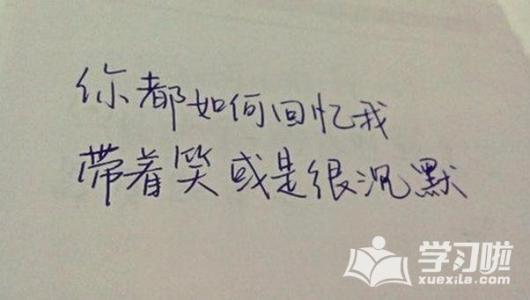 你都如何回忆我
带着笑或是很沉默
学习啦
xuexila.com